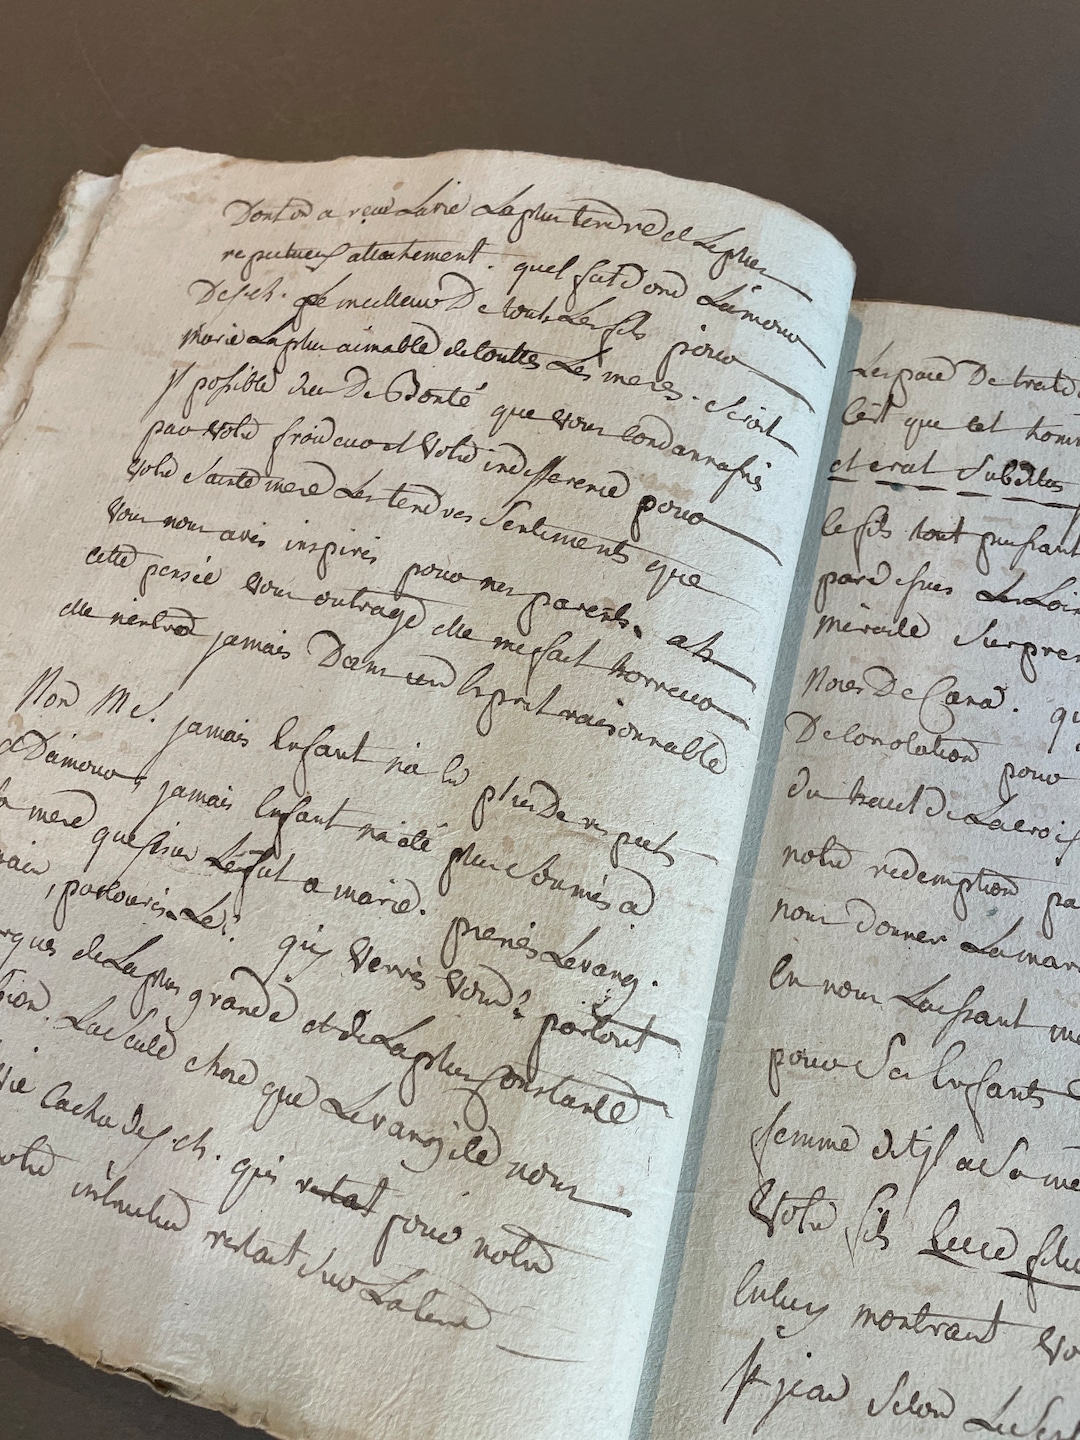 Dont on a reçu la vie la plus tendre et le plus
respectueux attachement. quel fut donc l'amour
De j. ch. le meilleur De touts Les fils pour
marie La plus aimable de touttes Les meres. seroit
jl possible dieu De Bonté que vous condannassiés
par votre froideur et votre indifference pour
votre sainte mere Les tendres sentiments que
vous nous avés inspirés pour nos parents. ah
cette pensée vous outrage elle me fait horreur
elle n'entrera jamais Dans un esprit raisonnable
Non M S. jamais enfant n'a eu plus De respect
et D'amour, jamais enfant n'a été plus soumis à
sa mere que jesus Le fut a marie. prenés L'evang.
main, parcourés-Le? qu'y verrés vous? partout
marques de La plus grande et de La plus Constante
La seule chose que L'evangile nous
vie cachée de j. ch. qui restat pour notre
notre instruction restait sur La terre
Les pace De trente
C'est que cet homm
et erat subditus
le fils tout puissant
par dessus Les Loix
miracle surpren
Noces De Cana. qu
De consolation pour
du haut de La croix
notre redemption pa
nous donner La mar
En nous Laissant
pour ses Enfants
femme dit jl a sa me
votre fils Ecce filiu
En luy montrant vo
st jean selon